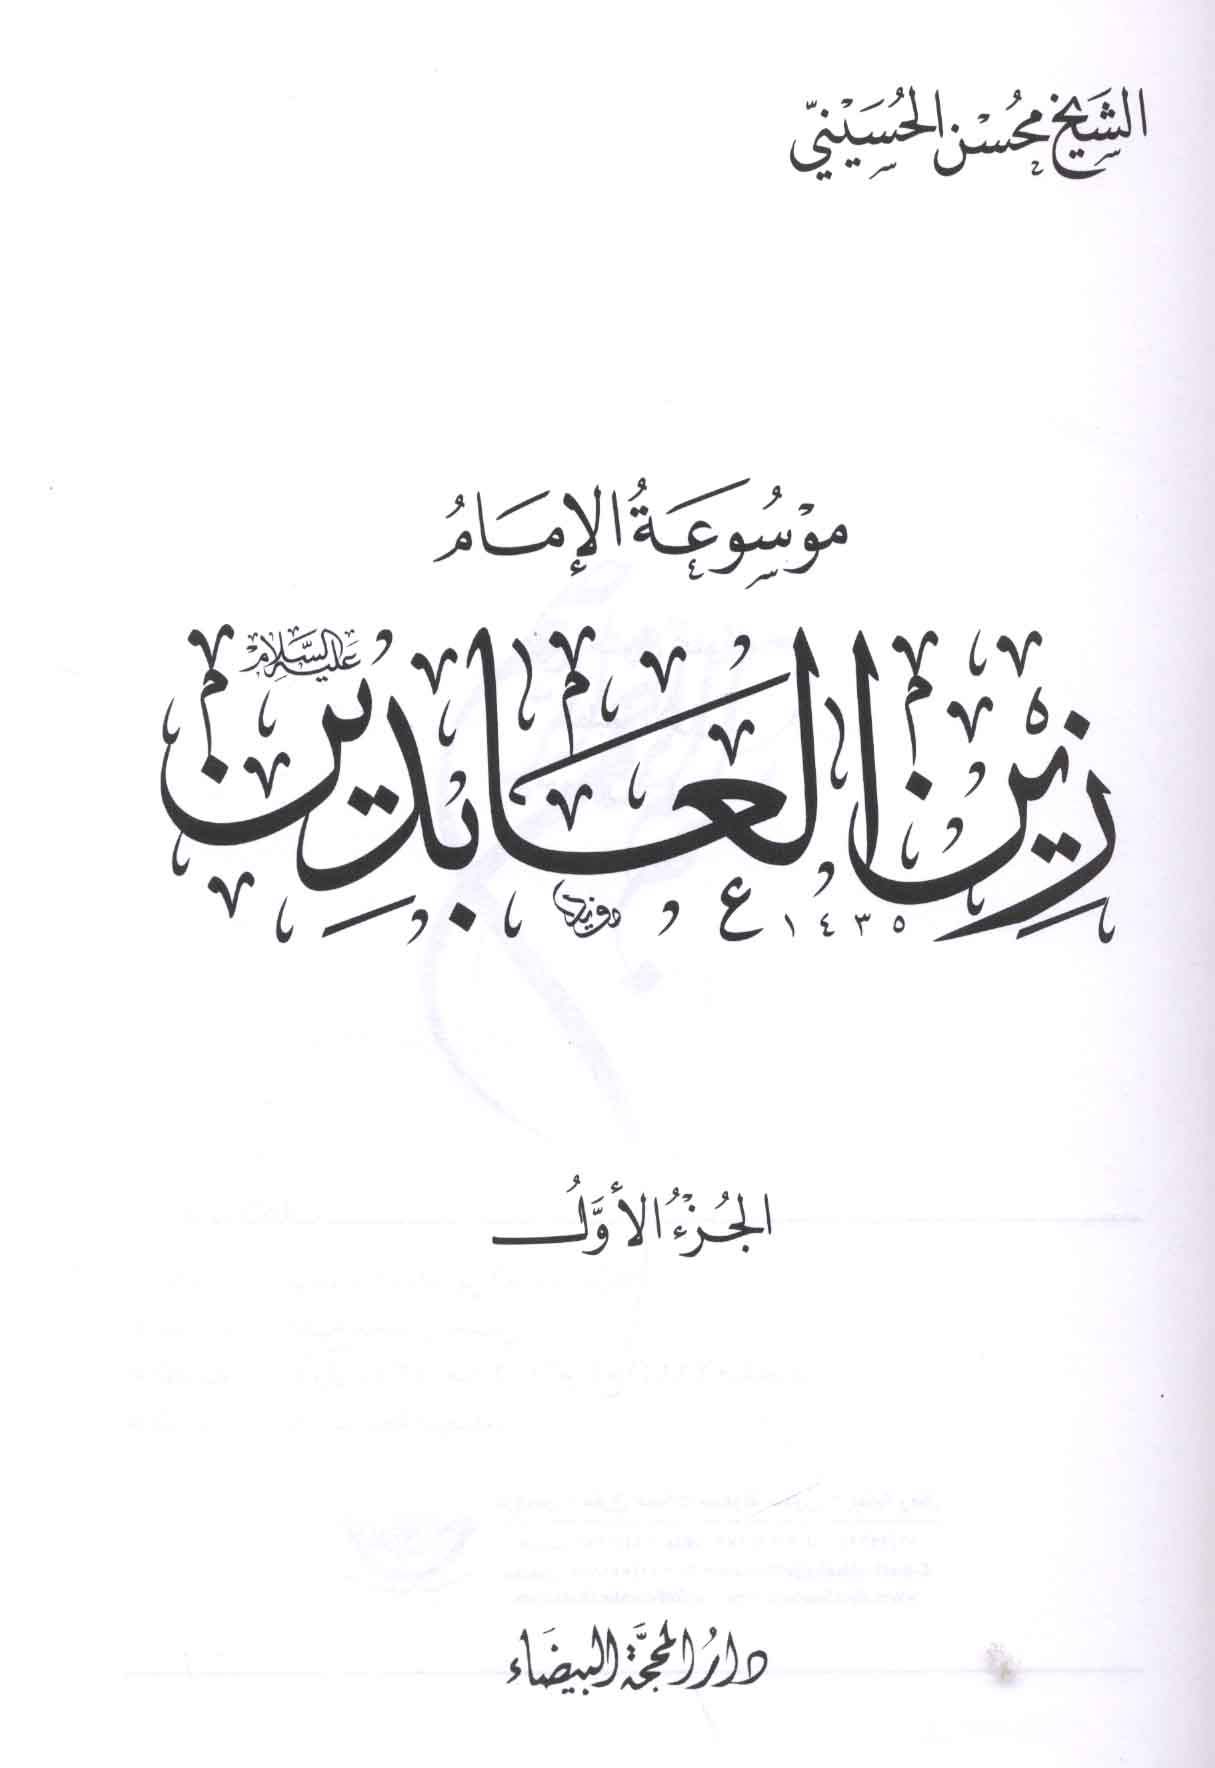 الشَيْخ مُحْسِن الحُسَيْنِيّ
مَوْسُوعَةُ الإمَامُ
زَيْنُ العَابِدِينَ
عَلَيْهِ السَّلَامُ
١٤٣٥
الجُزْءُ الأَوَّلُ
دَارُ المَحَجَّة البَيضَاء